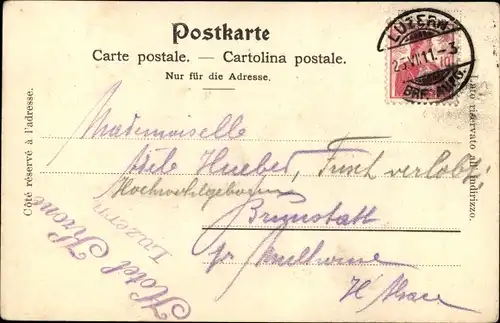 Postkarte
Carte postale. — Cartolina postale.
Nur für die Adresse.
LUZERN
BRF. AUFG.
10
Côté réservé à l'adresse.
Lato riservato all'indirizzo.
Mademoiselle
Adele Hueber, Frisch verlobt
Hochwohlgeboren
Brunstatt
pr Mulhouse
Hte Alsace
Hotel Krone
Luzern